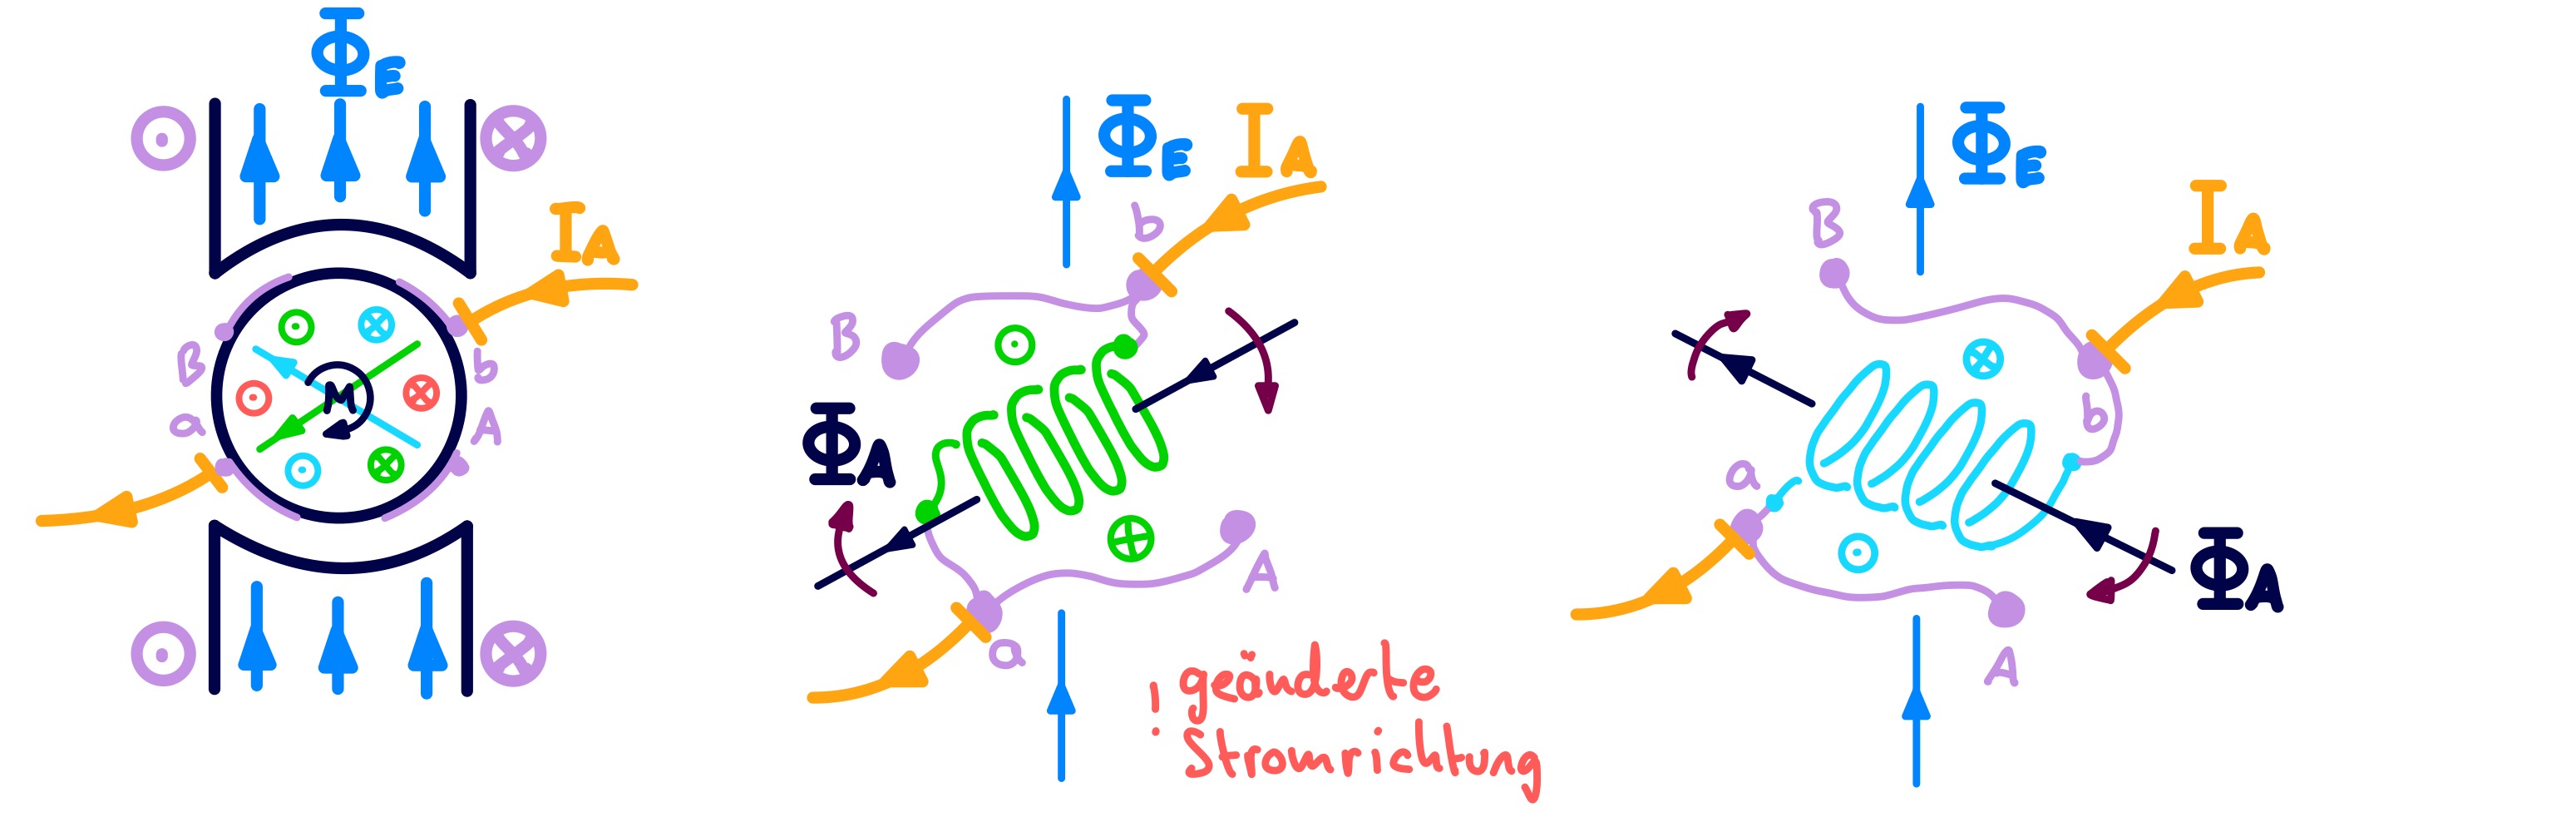 Φ_E
I_A
B
b
a
A
M
Φ_E
I_A
b
B
Φ_A
A
a
! geänderte
Stromrichtung
Φ_E
I_A
B
b
a
Φ_A
A